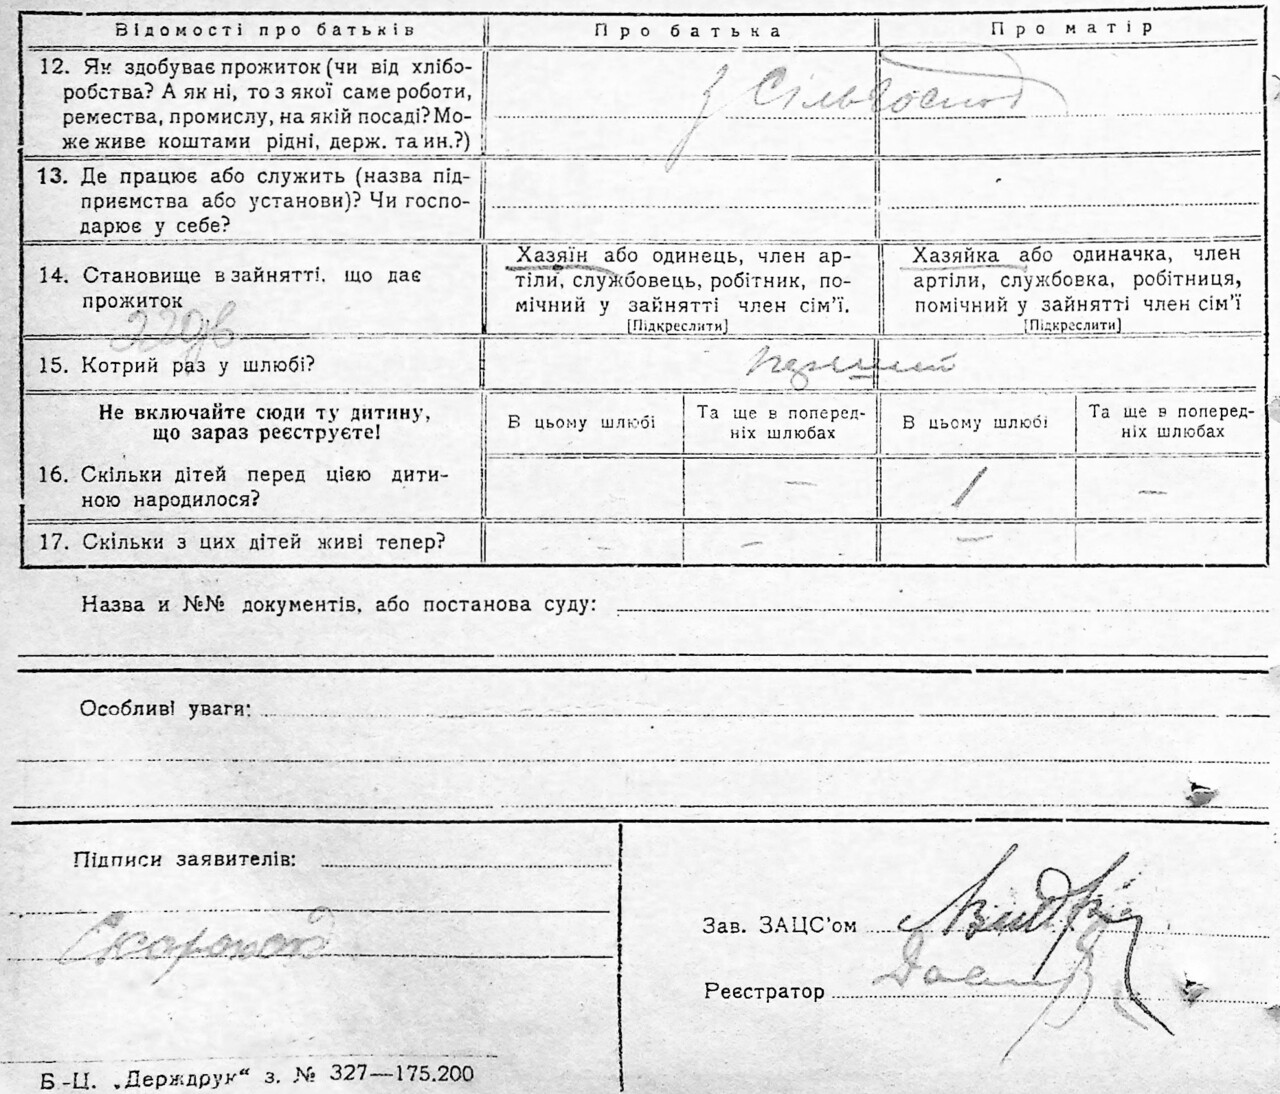 Відомості про батьків Про батька Про матір
12. Як здобуває прожиток (чи від хлібо-
робства? А як ні, то з якої саме роботи,
ремества, промислу, на якій посаді? Мо-
же живе коштами рідні, держ. та ин.?)
З Сільгоспод
13. Де працює або служить (назва під-
приємства або установи)? Чи госпо-
дарює у себе?
14. Становище в зайнятті, що дає
прожиток
Хазяїн або одинець, член ар-
тіли, службовець, робітник, по-
мічний у зайнятті член сім'ї.
[Підкреслити]
Хазяйка або одиначка, член
артіли, службовка, робітниця,
помічний у зайнятті член сім'ї
[Підкреслити]
15. Котрий раз у шлюбі? перший
Не включайте сюди ту дитину,
що зараз реєструєте!
В цьому шлюбі
Та ще в поперед-
ніх шлюбах
В цьому шлюбі
Та ще в поперед-
ніх шлюбах
16. Скільки дітей перед цією дити-
ною народилося?
— 1 —
17. Скільки з цих дітей живі тепер?
- - — —
Назва и №№ документів, або постанова суду:
Особливі уваги:
Підписи заявителів:
Скороход
Зав. ЗАЦС'ом
Реєстратор
Б.-Ц. „Держдрук“ з. № 327—175.200